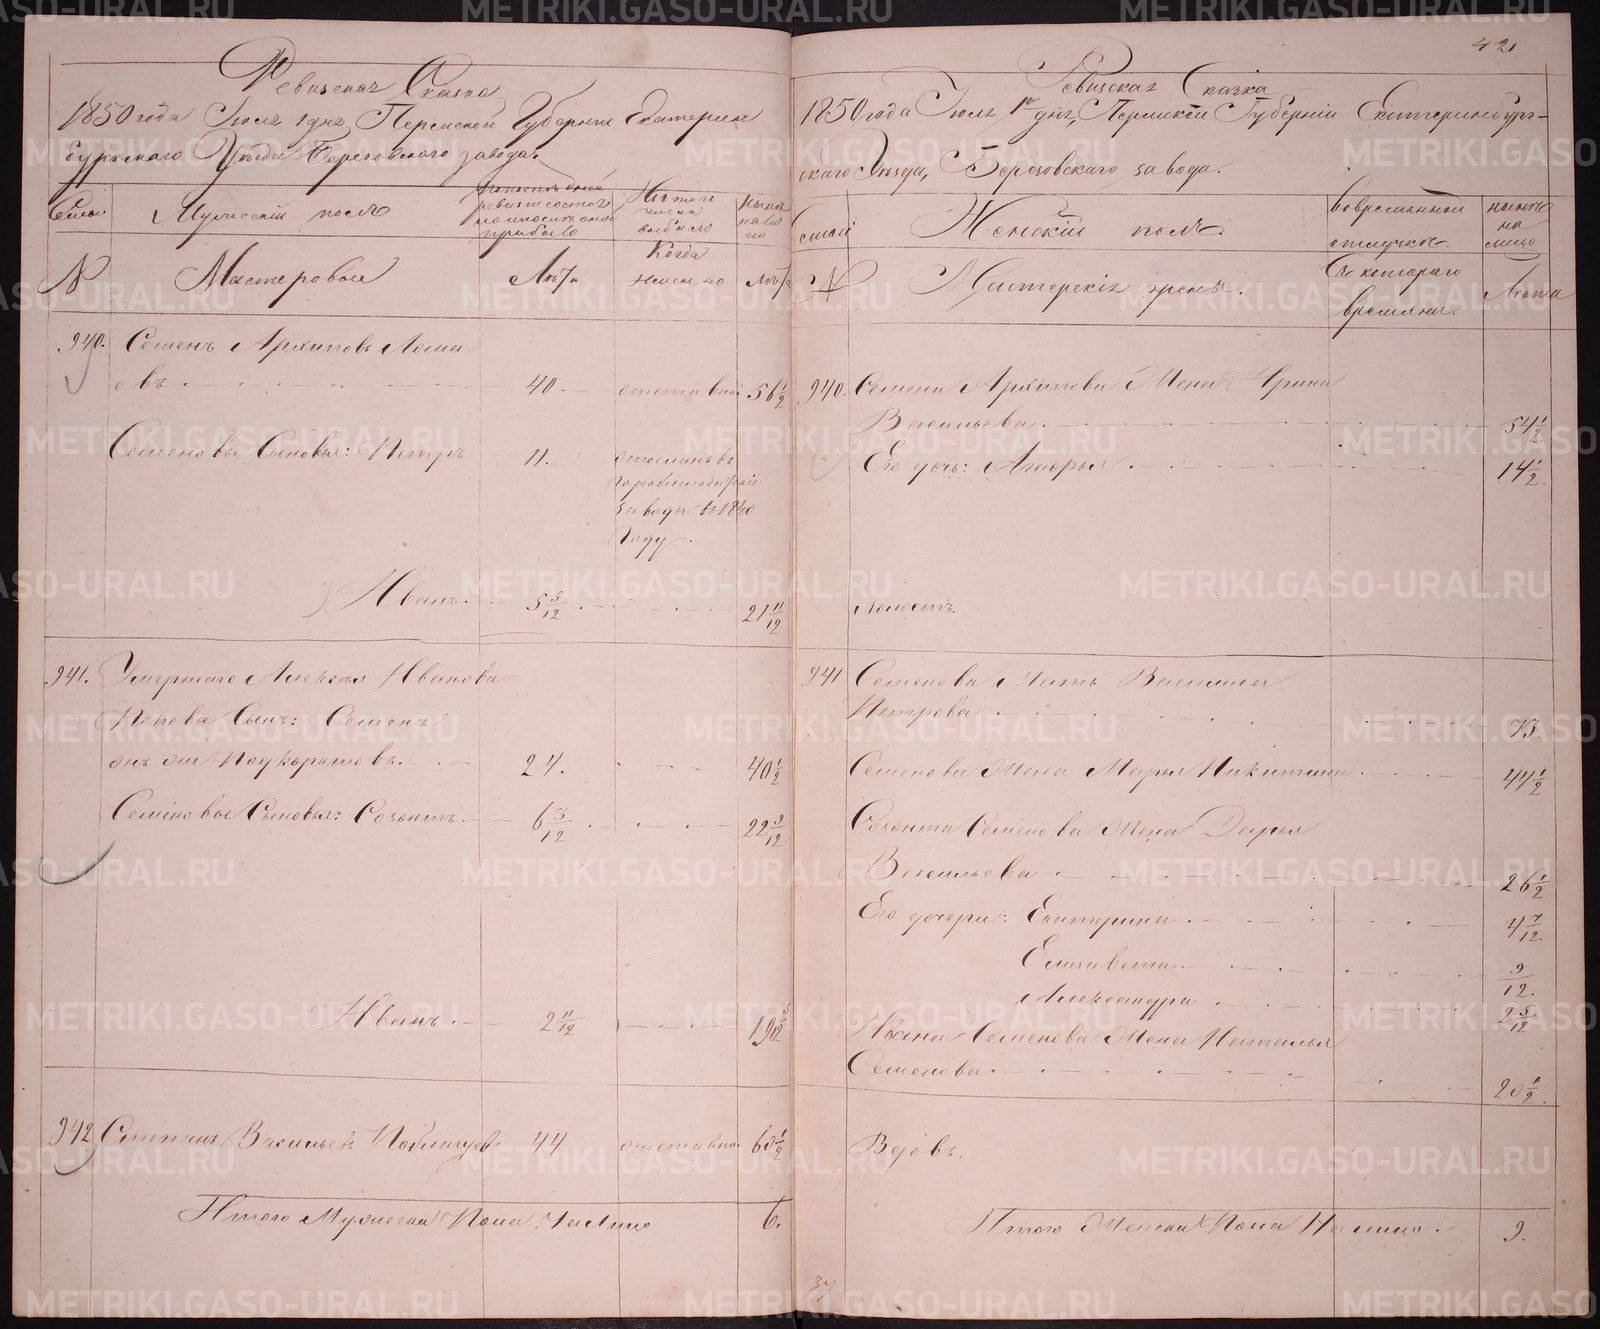 Ревизская Сказка
1850 года Июля 1 дня, Пермской Губернии Екатерин
бургскаго Уезда Березовскаго завода.
Семьи
Мужеский полъ
ревизіи состояло
прибыло
Изъ того
числа
выбыло
Ныне
на ли
цо
№
Мастеровые
Лета
Когда
именно
Лета
940.
Семенъ Архиповъ Лома
евъ
40.
отставной
56 1/2
Семеновы Сыновья: Петръ
11.
отосланъ въ
Гороблагодатскіе
заводы въ 1840
Году.
Иванъ
5 5/12
21 11/12
941.
Умершаго Алексея Иванова
Попова Сынъ: Семенъ
онъ же Подкорытовъ.
24.
40 1/2
Семеновы Сыновья: Созонтъ.
6 3/12
22 9/12
Иванъ
2 11/12
19 5/12
942
Степанъ Васильевъ
44
отставной
60 1/2
Итого Мужеска Пола На Лицо
6.
421
Ревизская Сказка
1850 года Июля 1го дня, Пермской Губерніи Екатеринбург-
скаго Уезда, Березовскаго завода.
семьи
Женскій полъ.
во временной
отлучке.
ныне
на
лицо
№
Мастерскія жены.
Съ котораго
времени.
Лета
940.
Семена Архипова Жена Ирина
Васильева
54 1/2
Его дочь: Марья
14 1/2
Холостъ.
941
Семенова Мать Василиса
Петрова
73.
Семенова Жена Марья Никитина
44 1/2
Созонта Семенова Жена Дарья
Васильева
26 1/2
Его дочери: Екатерина
4 7/12.
Елизавета
9/12.
Александра
2 5/12
Ивана Семенова Жена Наталья
Семенова
20 1/2.
Вдовъ.
Итого Женска Пола На лицо.
9.
37
METRIKI.GASO-URAL.RU